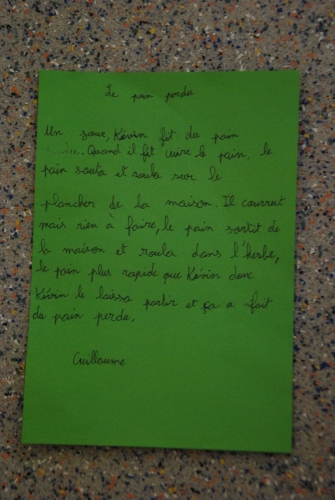 Le pain perdu
Un jour, Kévin fit du pain
. Quand il fit cuire le pain, le
pain sauta et roula sur le
plancher de la maison. Il courrut
mais rien à faire, le pain sortit de
la maison et roula dans l'herbe,
le pain plus rapide que Kévin donc
Kévin le laissa partir et ça a fait
du pain perdu.
Guillaume